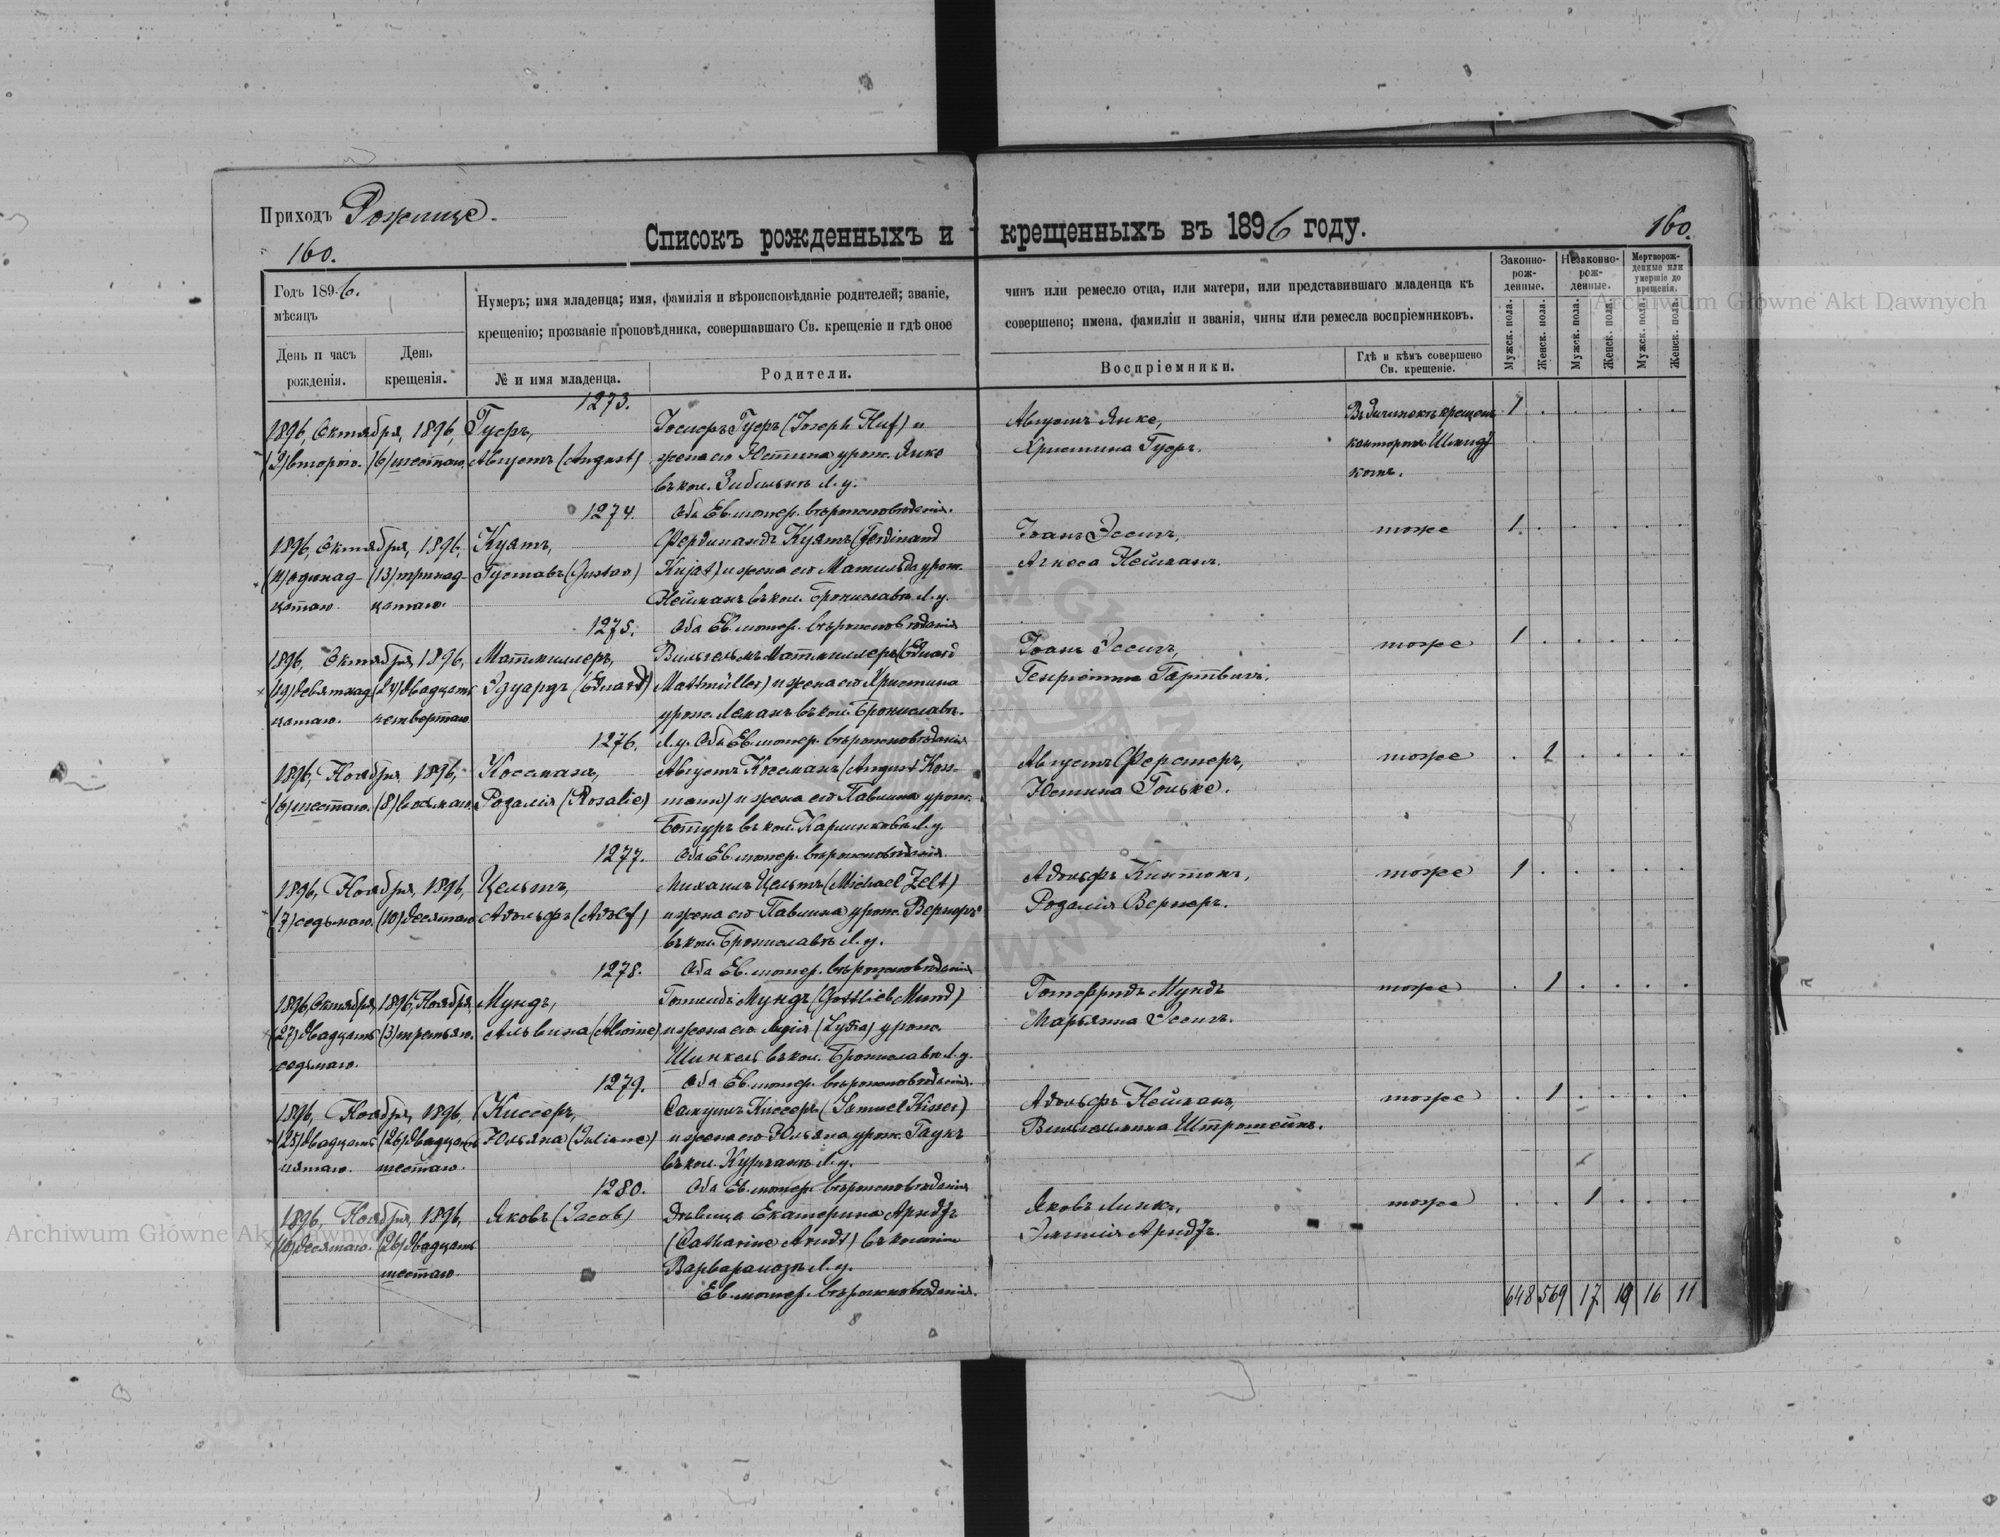 Приходъ Рожище.
160.
Списокъ рожденныхъ и крещенныхъ въ 1896 году.
160.
Годъ 1896.
мѣсяцъ
День и часъ рожденія.
День крещенія.
Нумеръ; имя младенца; имя, фамилія и вѣроисповѣданіе родителей; званіе,
крещенію; прозваніе проповѣдника, совершавшаго Св. крещеніе и гдѣ оное
№ и имя младенца.
Родители.
чинъ или ремесло отца, или матери, или представившаго младенца къ
совершено; имена, фамиліи и званія, чины или ремесла воспріемниковъ.
Воспріемники.
Гдѣ и кѣмъ совершено Св. крещеніе.
Законно-рож-денные.
Незаконно-рож-денные.
Мертворож-денные или умершіе до крещенія.
Мужск. пола.
Женск. пола.
Мужск. пола.
Женск. пола.
Мужск. пола.
Женск. пола.
1273.
1896, Октября, 1896, Гуфъ, Іосифъ Гуфъ (Joseph Huf) и Августъ Янке, 1
(2) второго. (6) шестаго. Августъ (August) жена его Юстина урож. Янке Христина Гуфъ. канторомъ
въ кол. Л. у.
1274. Оба Ев. лютер. вѣроисповѣданія.
1896, Октября, 1896, Куятъ, Фердинандъ Куятъ (Ferdinand Іоанъ Эссигъ, тоже 1
(11) одинад- (13) тринад- Густавъ (Gustav) Kujat) и жена его Матильда урож. Агнеса Нейманъ.
цатаго. цатаго. Нейманъ въ кол. Брониславка Л. у.
1275. Оба Ев. лютер. вѣроисповѣданія
1896, Октября, 1896, Матмиллеръ, Вильгельмъ Матмиллеръ (Eduard Іоанъ Эссигъ, тоже 1
(19) девятнад- (24) двадцать Эдуардъ (Eduard) Mattmüller) и жена его Христина
цатаго. четвертаго урож. Леманъ въ кол. Брониславк.
1276. Л. у. Оба Ев. лютер. вѣроисповѣданія
1896, Ноября, 1896, Коссманъ, Августъ Коссманъ (August Koss- Августъ Ферстеръ, тоже 1
(6) шестаго. (8) восьмаго. Розалія (Rosalie) mann) и жена его Павлина урож. Юстина
въ кол. Л. у.
1277. Оба Ев. лютер. вѣроисповѣданія.
1896, Ноября, 1896, Цельтъ, Михаилъ Цельтъ (Michael Zelt) Адольфъ тоже 1
(7) седьмаго. (10) десятаго Адольфъ (Adolf) и жена его Павлина урож. Вернеръ Розалія Вернеръ.
въ кол. Брониславка Л. у.
1278. Оба Ев. лютер. вѣроисповѣданія
1896, Октября, 1896, Ноября, Мундъ, Готлибъ Мундъ (Gottlieb Mund) Готфридъ Мундъ тоже 1
(27) двадцать (3) третьяго. Альвина (Alwine) и жена его Лидія (Lydia) урож. Марьянна Эссигъ.
седьмаго. Шинкель въ кол. Брониславка Л. у.
1279. Оба Ев. лютер. вѣроисповѣданія.
1896, Ноября, 1896, Киссеръ, Самуилъ Киссеръ (Samuel Kisser) Адольфъ Нейманъ, тоже 1
(25) двадцать (26) двадцать Юльяна (Juliane) и жена его Юльяна урож. Гаукъ Вильгельмина Штрошейнъ.
пятаго. шестаго. въ кол. Л. у.
1280. Оба Ев. лютер. вѣроисповѣданія
1896, Ноября, 1896, Яковъ (Jacob) Дѣвица Екатерина Арндтъ Яковъ Линкъ, тоже 1
(10) десятаго. (26) двадцать (Catharine Arndt) въ колоніи Эмилія Арндтъ.
шестаго Л. у.
Ев. лютер. вѣроисповѣданія.
648 569 17 19 16 11
Archiwum Główne Akt Dawnych
Archiwum Główne Akt Dawnych